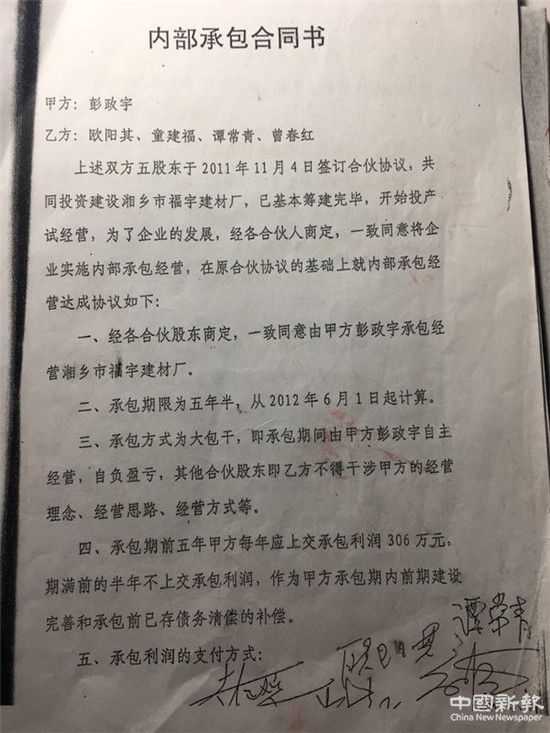 内部承包合同书
甲方：彭政宇
乙方：欧阳其、童建福、谭常青、曾春红
上述双方五股东于 2011 年 11 月 4 日签订合伙协议，共
同投资建设湘乡市福宇建材厂，已基本筹建完毕，开始投产
试经营，为了企业的发展，经各合伙人商定，一致同意将企
业实施内部承包经营，在原合伙协议的基础上就内部承包经
营达成协议如下：
一、经各合伙股东商定，一致同意由甲方彭政宇承包经
营湘乡市福宇建材厂。
二、承包期限为五年半，从 2012 年 6 月 1 日起计算。
三、承包方式为大包干，即承包期间由甲方彭政宇自主
经营，自负盈亏，其他合伙股东即乙方不得干涉甲方的经营
理念、经营思路、经营方式等。
四、承包期前五年甲方每年应上交承包利润 306 万元，
期满前的半年不上交承包利润，作为甲方承包期内前期建设
完善和承包前已存债务清偿的补偿。
谭常青
五、承包利润的支付方式：
中國新報
China New Newspaper